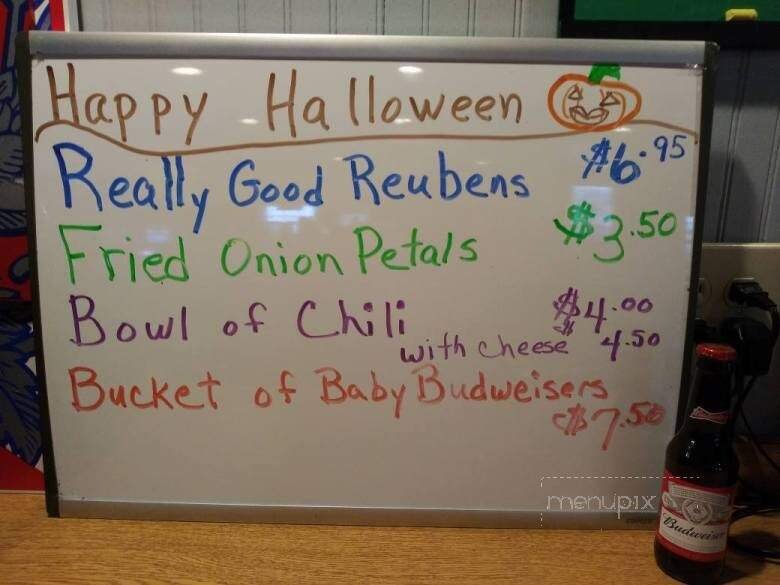 Happy Halloween
Really Good Reubens $6.95
Fried Onion Petals $3.50
Bowl of Chili $4.00
with cheese $4.50
Bucket of Baby Budweisers
$7.50
menupix
Budweiser